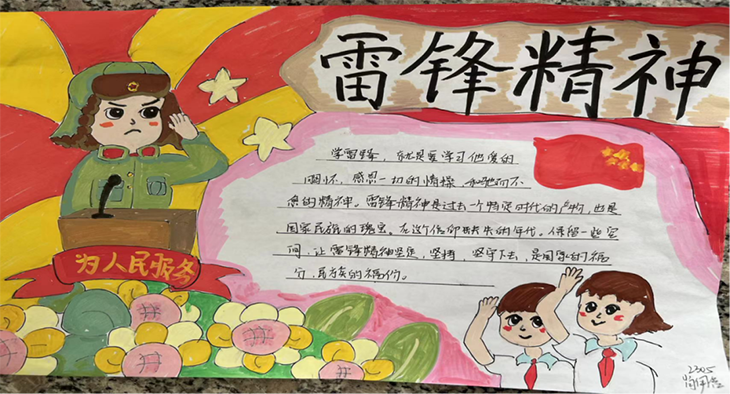 雷锋精神
学雷锋，就是要学习他爱的
关怀，感恩一切的情操，和驰而不
息的精神。雷锋精神是过去一个特定时代的产物，也是
国家民族的瑰宝，在这个信仰缺失的年代。保留一些空
间，让雷锋精神坚定，坚持，坚守下去，是国家的福
分，民族的福份。
为人民服务
2305